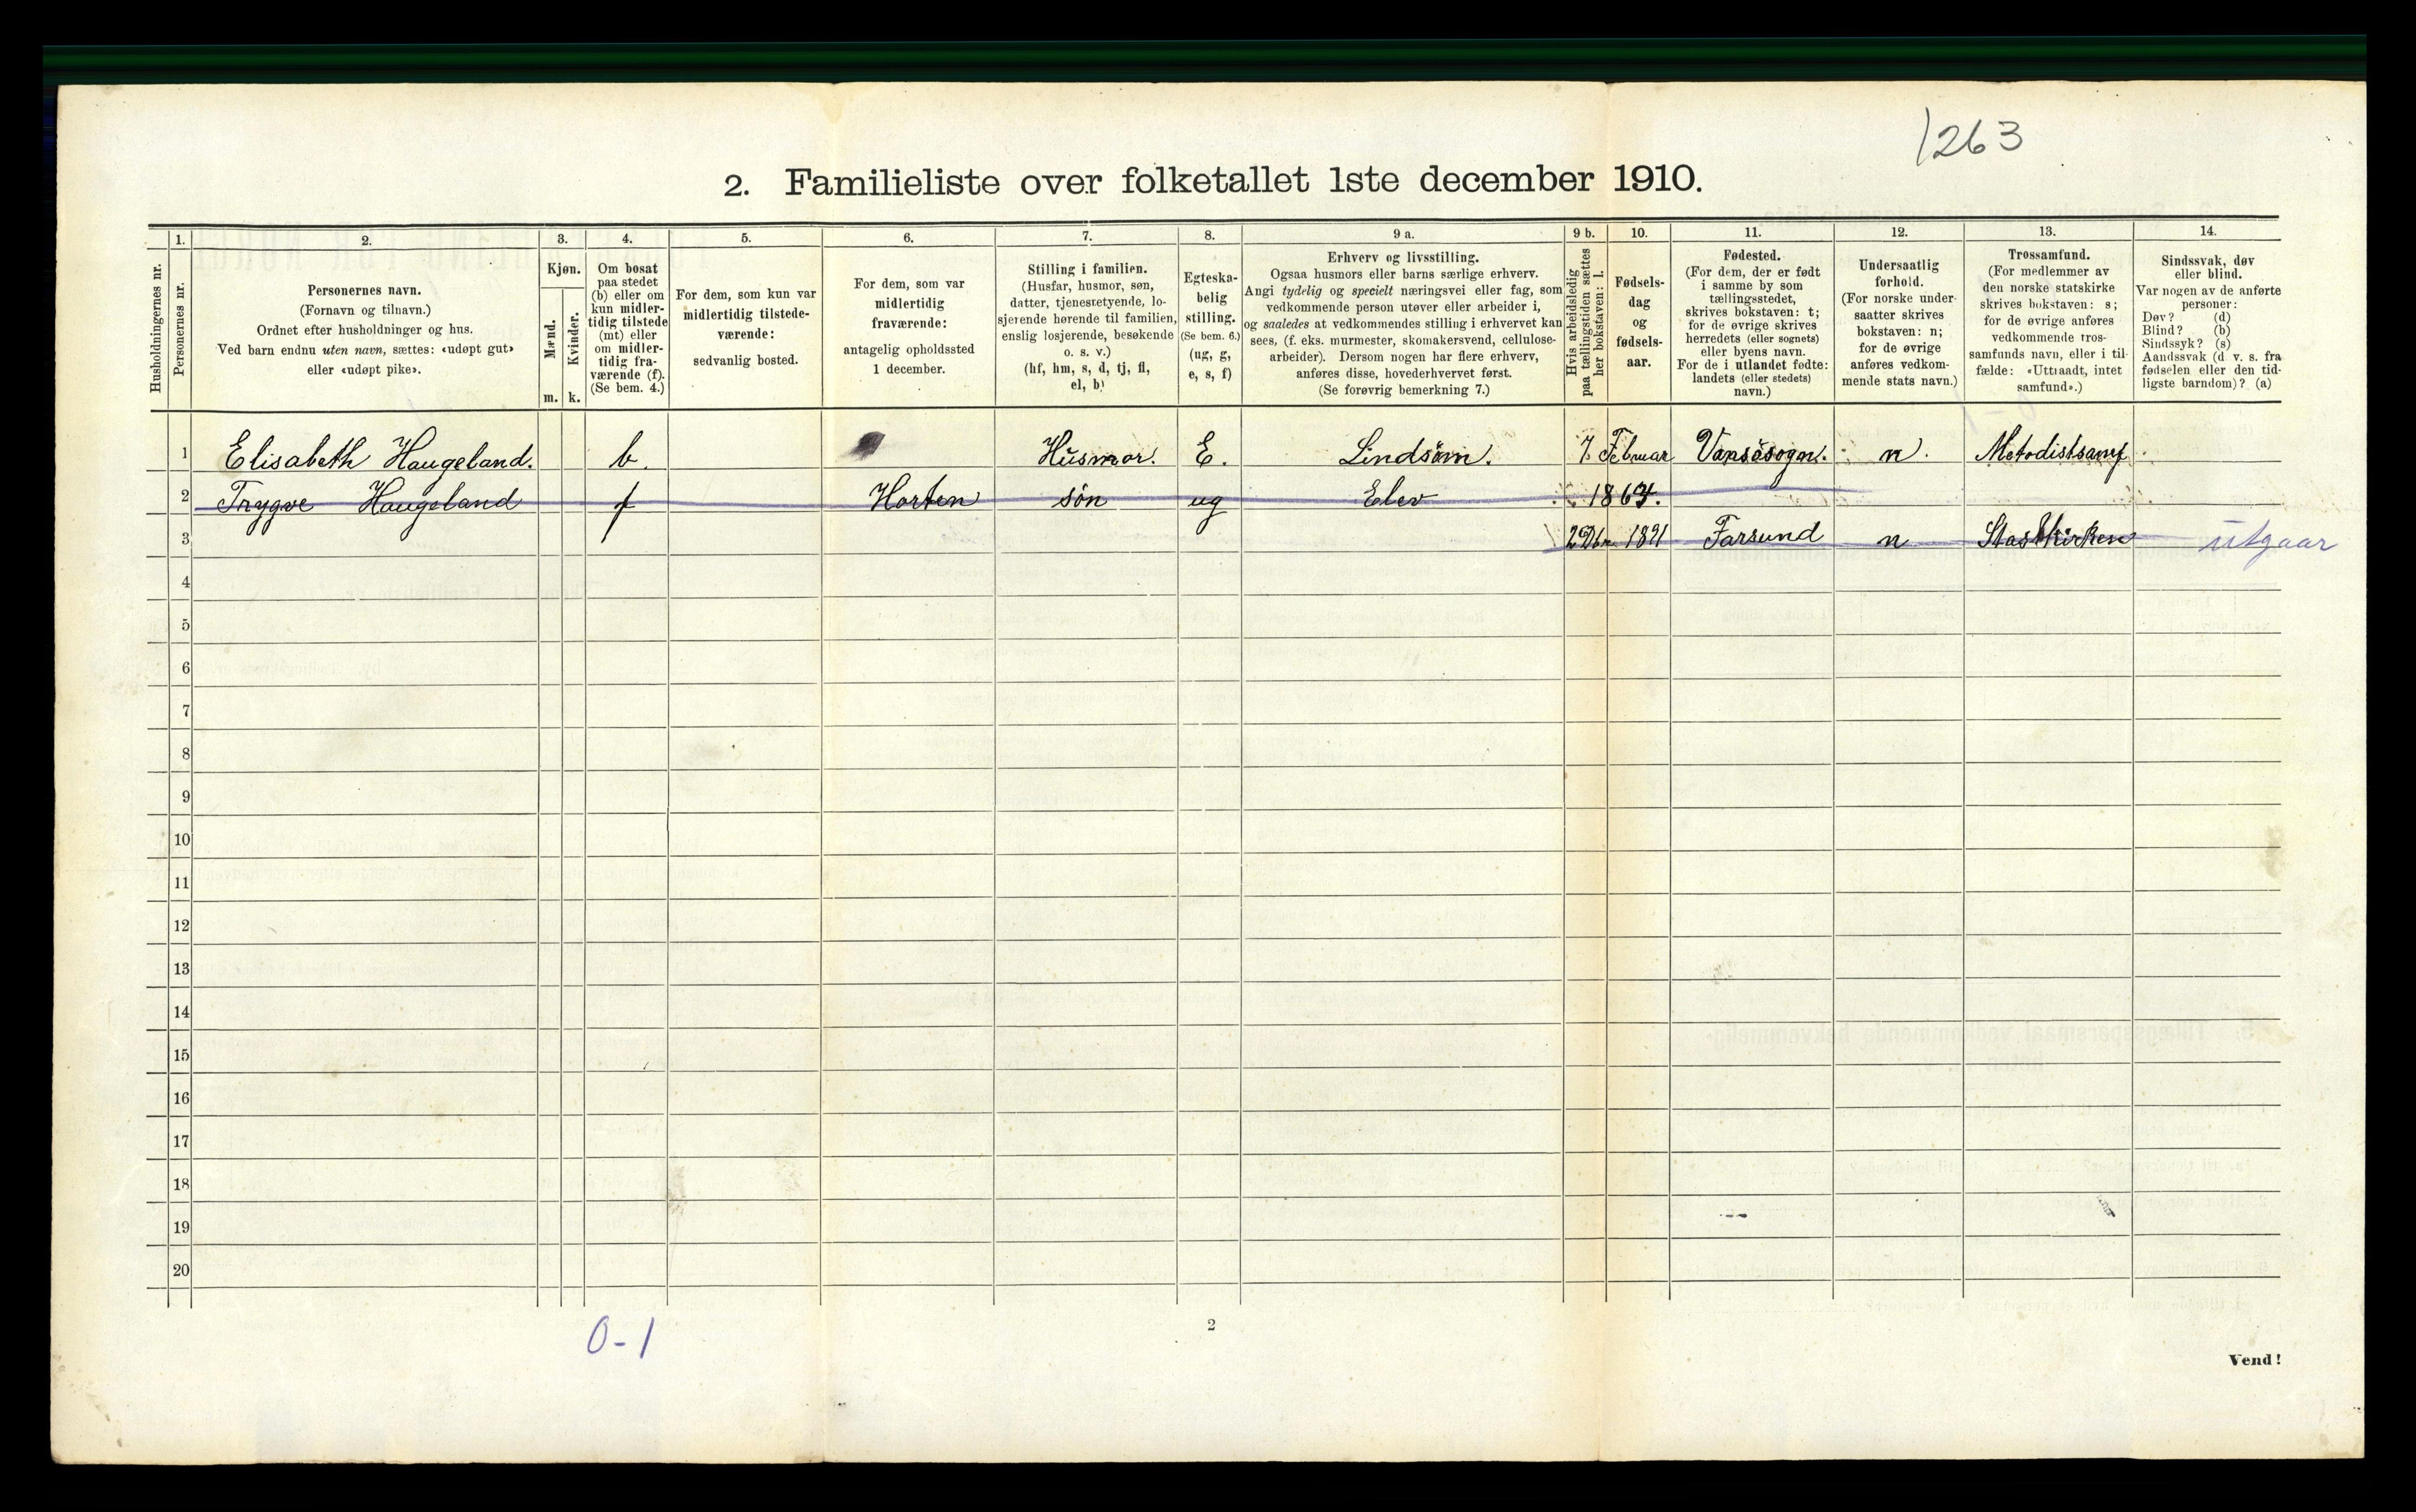 1263
2. Familieliste over folketallet 1ste december 1910.
Husholdningernes nr.
1.
Personernes nr.
2.
Personernes navn.
(Fornavn og tilnavn.)
Ordnet efter husholdninger og hus.
Ved barn endnu uten navn, sættes: «udøpt gut»
eller «udøpt pike».
3.
Kjøn.
Mænd.
Kvinder.
m. k.
4.
Om bosat
paa stedet
(b) eller om
kun midler-
tidig tilstede
(mt) eller
om midler-
tidig fra-
værende (f).
(Se bem. 4.)
5.
For dem, som kun var
midlertidig tilstede-
værende:
sedvanlig bosted.
6.
For dem, som var
midlertidig
fraværende:
antagelig opholdssted
1 december.
7.
Stilling i familien.
(Husfar, husmor, søn,
datter, tjenestetyende, lo-
sjerende hørende til familien,
enslig losjerende, besøkende
o. s. v.)
(hf, hm, s, d, tj, fl,
el, b)
8.
Egteska-
belig
stilling.
(Se bem. 6.)
(ug, g,
e, s, f)
9 a.
Erhverv og livsstilling.
Ogsaa husmors eller barns særlige erhverv.
Angi tydelig og specielt næringsvei eller fag, som
vedkommende person utøver eller arbeider i,
og saaledes at vedkommendes stilling i erhvervet kan
sees, (f. eks. murmester, skomakersvend, cellulose-
arbeider). Dersom nogen har flere erhverv,
anføres disse, hovederhvervet først.
(Se forøvrig bemerkning 7.)
9 b.
Hvis arbeidsledig
paa tællingstiden sættes
her bokstaven: l.
10.
Fødsels-
dag
og
fødsels-
aar.
11.
Fødested.
(For dem, der er født
i samme by som
tællingsstedet,
skrives bokstaven: t;
for de øvrige skrives
herredets (eller sognets)
eller byens navn.
For de i utlandet fødte:
landets (eller stedets)
navn.)
12.
Undersaatlig
forhold.
(For norske under-
saatter skrives
bokstaven: n;
for de øvrige
anføres vedkom-
mende stats navn.)
13.
Trossamfund.
(For medlemmer av
den norske statskirke
skrives bokstaven: s;
for de øvrige anføres
vedkommende tros-
samfunds navn, eller i til-
fælde: «Uttraadt, intet
samfund».)
14.
Sindssvak, døv
eller blind.
Var nogen av de anførte
personer:
Døv? (d)
Blind? (b)
Sindssyk? (s)
Aandssvak (d. v. s. fra
fødselen eller den tid-
ligste barndom)? (a)
1 Elisabeth Haugeland. b. Husmor. E. Lindsöm. 7. Februar Vansösogn. n. Metodistsamf.
2 Trygve Haugeland f Horten sön ug Elev 1864.
3 2 Dbr 1891 Farsund n Statskirken utgaar
4
5
6
7
8
9
10
11
12
13
14
15
16
17
18
19
20
0-1
2
Vend!